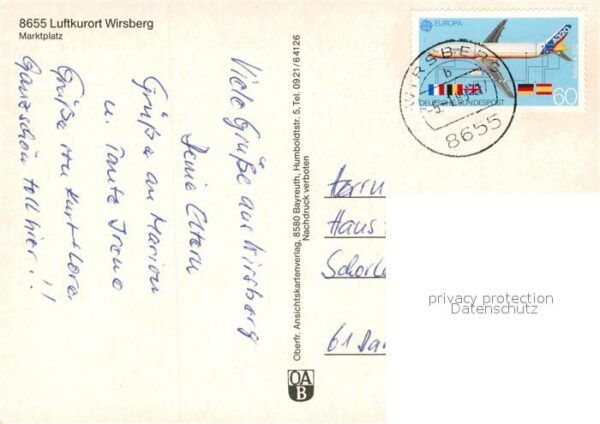 8655 Luftkurort Wirsberg
Marktplatz
Viele Grüße aus Wirsberg
Deine Eltern
Grüße an Marion
u. Tante Irene
Grüße von Kurt + Lore
Ganz schön toll hier!!
Oberfr. Ansichtskartenverlag, 8580 Bayreuth, Humboldtstr. 5, Tel. 0921/64126
Nachdruck verboten
OA
B
EUROPA
A320
DEUTSCHE BUNDESPOST
60
WIRSBERG
b
8655
Herrn
Hans
61 Da
privacy protection
Datenschutz